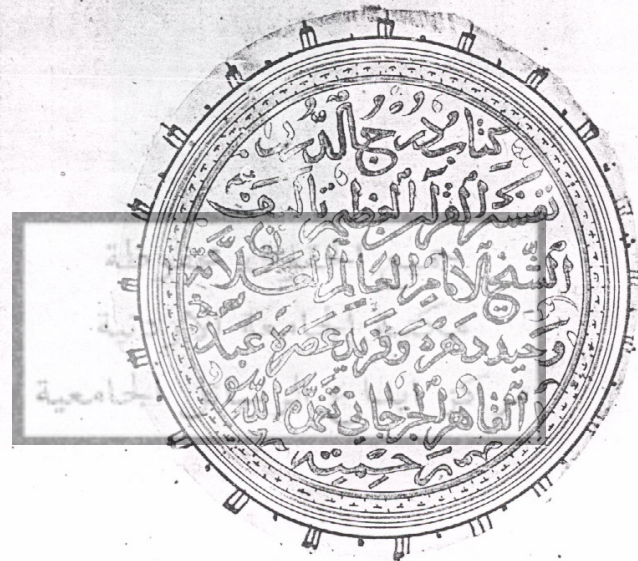 كتاب درج الدرر
تفسير القرآن العظيم تأليف
الشيخ الامام العالم العلامة
وحيد دهره وفريد عصره عبد
القاهر الجرجاني تغمده الله
برحمته
جامعية